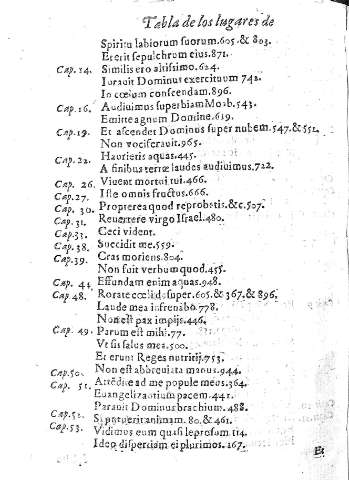 Tabla de los lugares de
Spiritu labiorum suorum.605.& 803.
Et erit sepulchrum eius.871.
Cap.14. Similis ero altissimo.624.
Iurauit Dominus exercituum 742.
In cœlum conscendam.896.
Cap.16. Audiuimus superbiam Moab.543.
Emitte agnum Domine.619.
Cap.19. Et ascendet Dominus super nubem.547.&551.
Non vociferauit.965.
Cap.22. Haurietis aquas.445.
A finibus terræ laudes audiuimus.722.
Cap. 26. Viuent mortui tui.466.
Cap.27. Iste omnis fructus.666.
Cap. 30. Propterea quod reprobastis.&c.507.
Cap.31. Reuertere virgo Israel.480.
Cap.35. Ceci vident.
Cap.38. Succidit me.559.
Cap.39. Cras moriens.804.
Non suit verbum quod.455.
Cap. 44. Effundam enim aquas.948.
Cap.48. Rorate cœli desuper.605.& 367.& 896.
Laude mea infrenabo.778.
Non est pax impijs.446.
Cap. 49. Parum est mihi.77.
Vt sis salus mea.500.
Et erunt Reges nutritij.753.
Cap.50. Non est abbreuiata manus.944.
Cap. 51. Attēdite ad me popule meus.364.
Euangelizantium pacem.441.
Parauit Dominus brachium.488.
Cap.52. Si posuerit animam. 80.& 461.
Cap.53. Vidimus eum quasi leprosum.114.
Ideo dispertiam ei plurimos.267.
Et